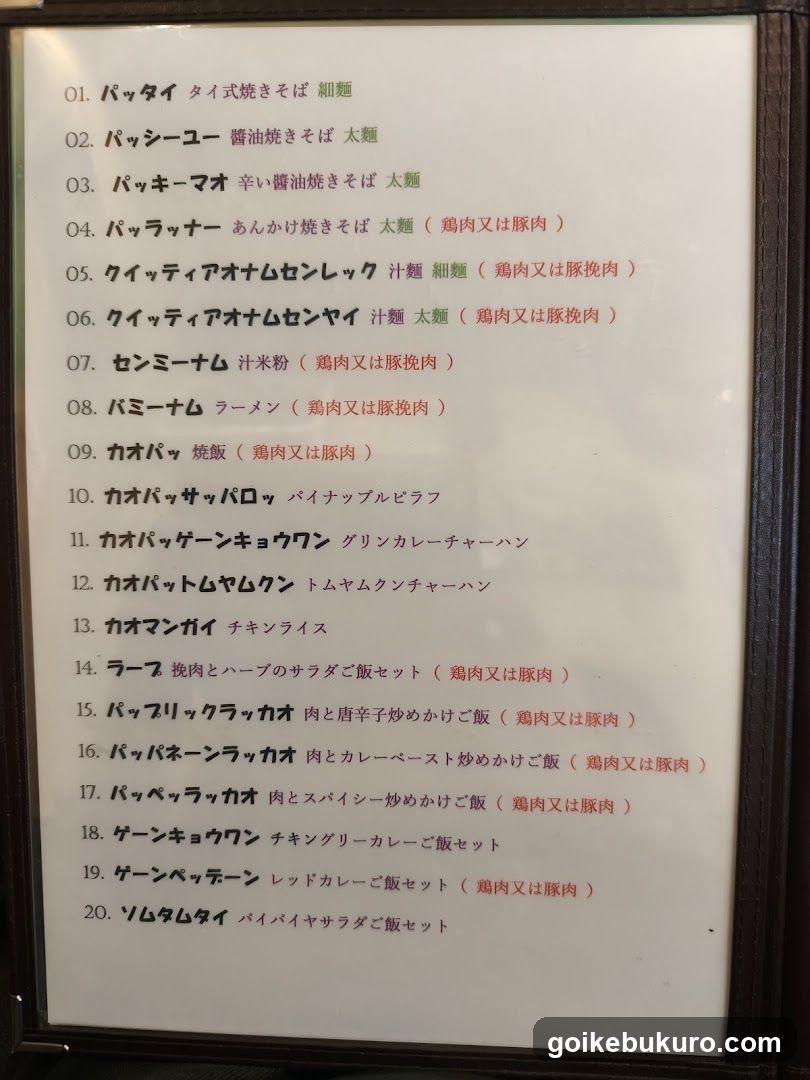 01. パッタイ タイ式焼きそば 細麵
02. パッシーユー 醬油焼きそば 太麵
03. パッキーマオ 辛い醬油焼きそば 太麵
04. パッラッナー あんかけ焼きそば 太麵 ( 鶏肉又は豚肉 )
05. クイッティアオナムセンレック 汁麵 細麵 ( 鶏肉又は豚挽肉 )
06. クイッティアオナムセンヤイ 汁麵 太麵 ( 鶏肉又は豚挽肉 )
07. センミーナム 汁米粉 ( 鶏肉又は豚挽肉 )
08. バミーナム ラーメン ( 鶏肉又は豚挽肉 )
09. カオパッ 焼飯 ( 鶏肉又は豚肉 )
10. カオパッサッパロッ パイナップルピラフ
11. カオパッゲーンキョウワン グリンカレーチャーハン
12. カオパットムヤムクン トムヤムクンチャーハン
13. カオマンガイ チキンライス
14. ラープ 挽肉とハーブのサラダご飯セット ( 鶏肉又は豚肉 )
15. パップリックラッカオ 肉と唐辛子炒めかけご飯 ( 鶏肉又は豚肉 )
16. パッパネーンラッカオ 肉とカレーペースト炒めかけご飯 ( 鶏肉又は豚肉 )
17. パッペッラッカオ 肉とスパイシー炒めかけご飯 ( 鶏肉又は豚肉 )
18. ゲーンキョウワン チキングリーカレーご飯セット
19. ゲーンペッデーン レッドカレーご飯セット ( 鶏肉又は豚肉 )
20. ソムタムタイ パイパイヤサラダご飯セット
goikebukuro.com